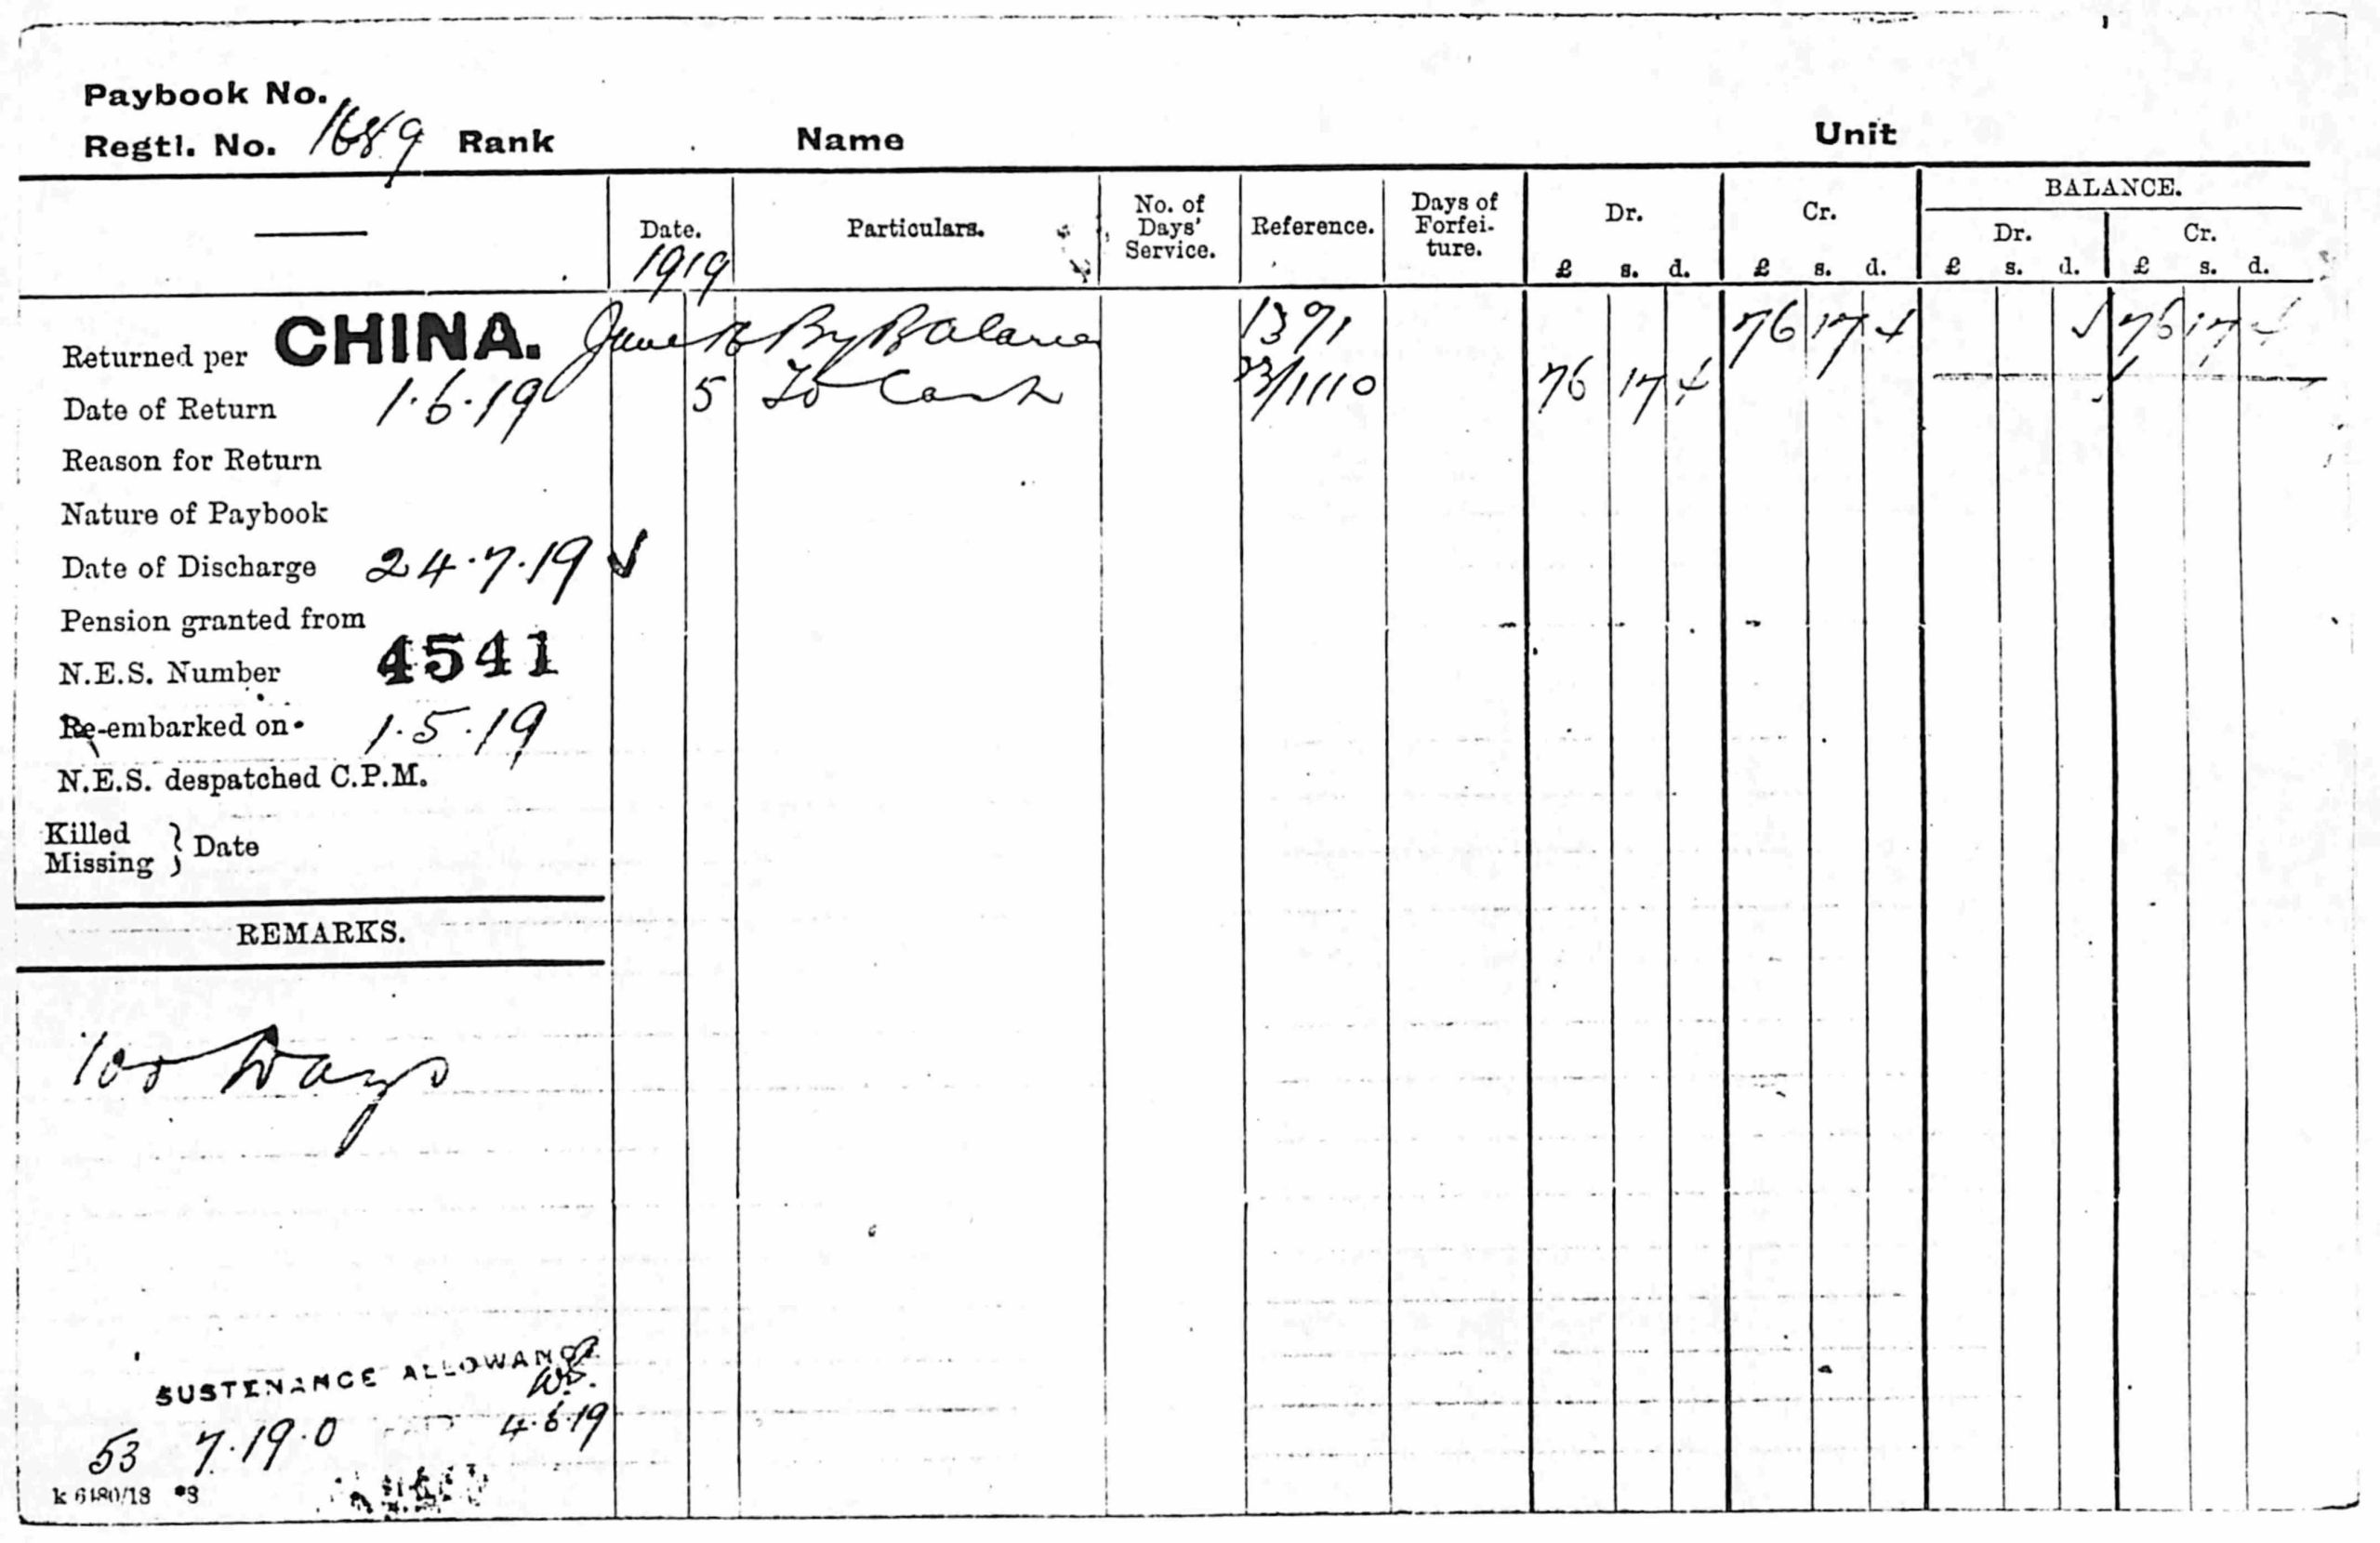 Paybook No.
Regtl. No. 1689 Rank Name Unit
Date. Particulars. No. of Days' Service. Reference. Days of Forfei- ture. Dr. Cr. BALANCE.
Dr. Cr.
1919 £ s. d. £ s. d. £ s. d. £ s. d.
Returned per CHINA. June By Balance 1391 76 17 4 76 17 4
Date of Return 1.6.19 5 To Cash 23/1110 76 17 4
Reason for Return
Nature of Paybook
Date of Discharge 24.7.19 ✓
Pension granted from
N.E.S. Number 4541
Re-embarked on 1.5.19
N.E.S. despatched C.P.M.
Killed
Missing } Date
REMARKS.
Days
SUSTENANCE ALLOWANCE
53 7.19.0 4.6.19
k 6480/18 *3